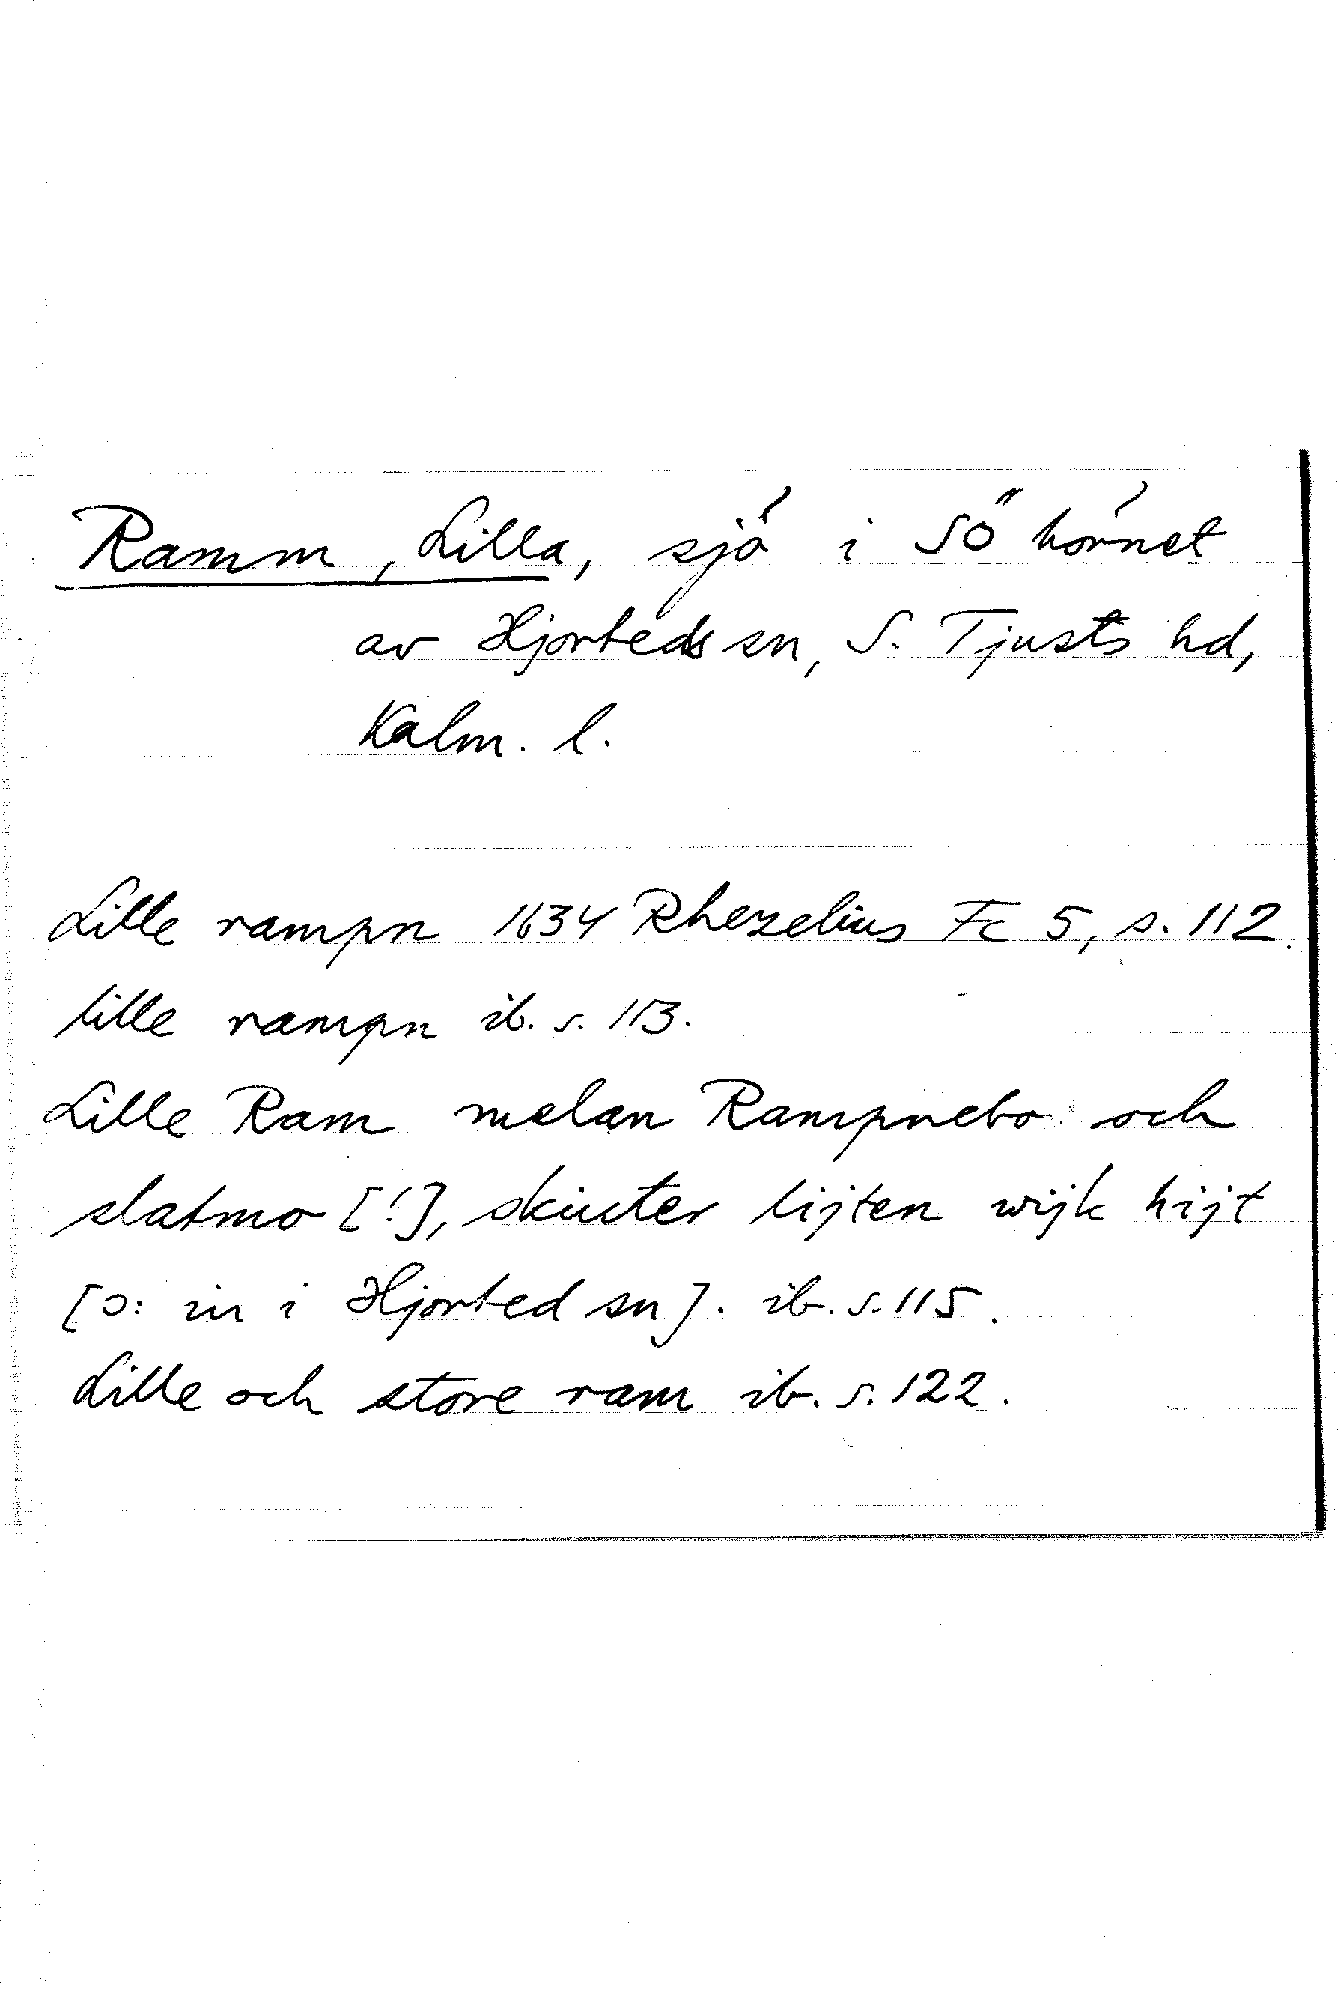 Ramm, Lilla, sjö i SÖ hörnet
av Hjorteds sn, S. Tjusts hd,
Kalm. l.
Lille rampn 1634 Rhezelius Fc 5, s. 112.
lille rampn ib. s. 113.
Lille Ram melan Rampnebo och
slatmo [!], skiuter lijten wijk hijt
[ɔ: in i Hjorted sn]. ib. s. 115.
Lille och store ram ib. s. 122.